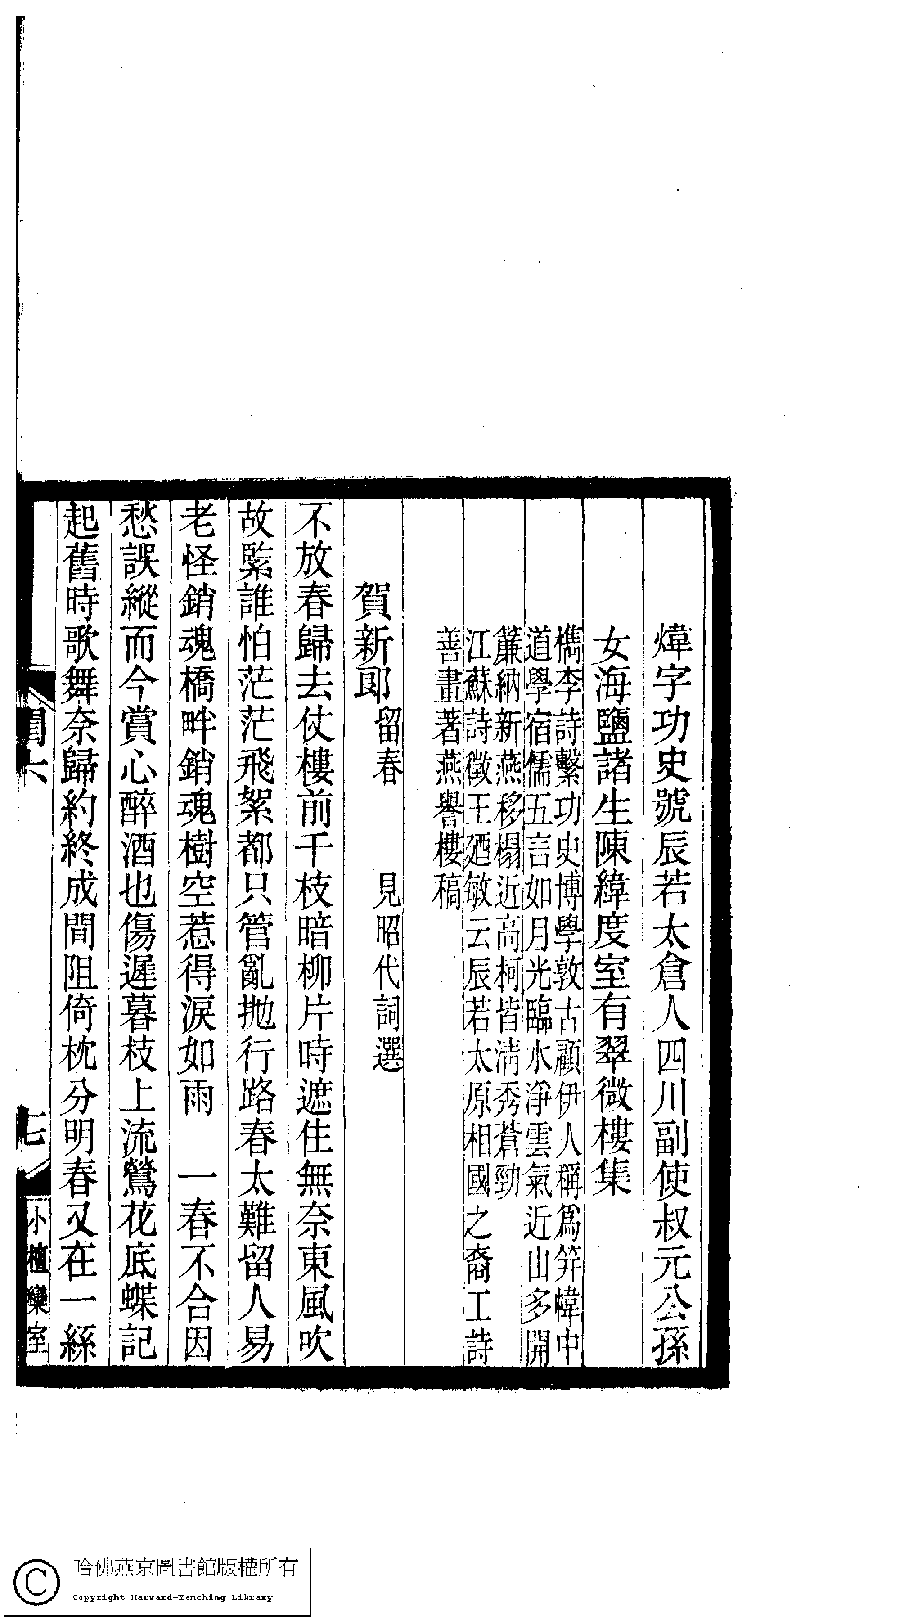 煒字功史號辰若太倉人四川副使叔元公孫
女海鹽諸生陳緯度室有翠微樓集
檇李詩繫功史博學敦古顧伊人稱爲笄幃中
道學宿儒五言如月光臨水淨雲氣近山多開
簾納新燕移榻近高柯皆清秀蒼勁
江蘇詩徵王廼敏云辰若太原相國之裔工詩
善畫著燕譽樓稿
賀新郎 留春 見昭代詞選
不放春歸去仗樓前千枝暗柳片時遮住無奈東風吹
故緊誰怕茫茫飛絮都只管亂抛行路春太難留人易
老怪銷魂橋畔銷魂樹空惹得淚如雨 一春不合因
愁誤縱而今賞心醉酒也傷遲暮枝上流鶯花底蝶記
起舊時歌舞奈歸約終成間阻倚枕分明春又在一絲
閨六
七
小檀欒室
哈佛燕京圖書館版權所有
Copyright Harvard-Yenching Library